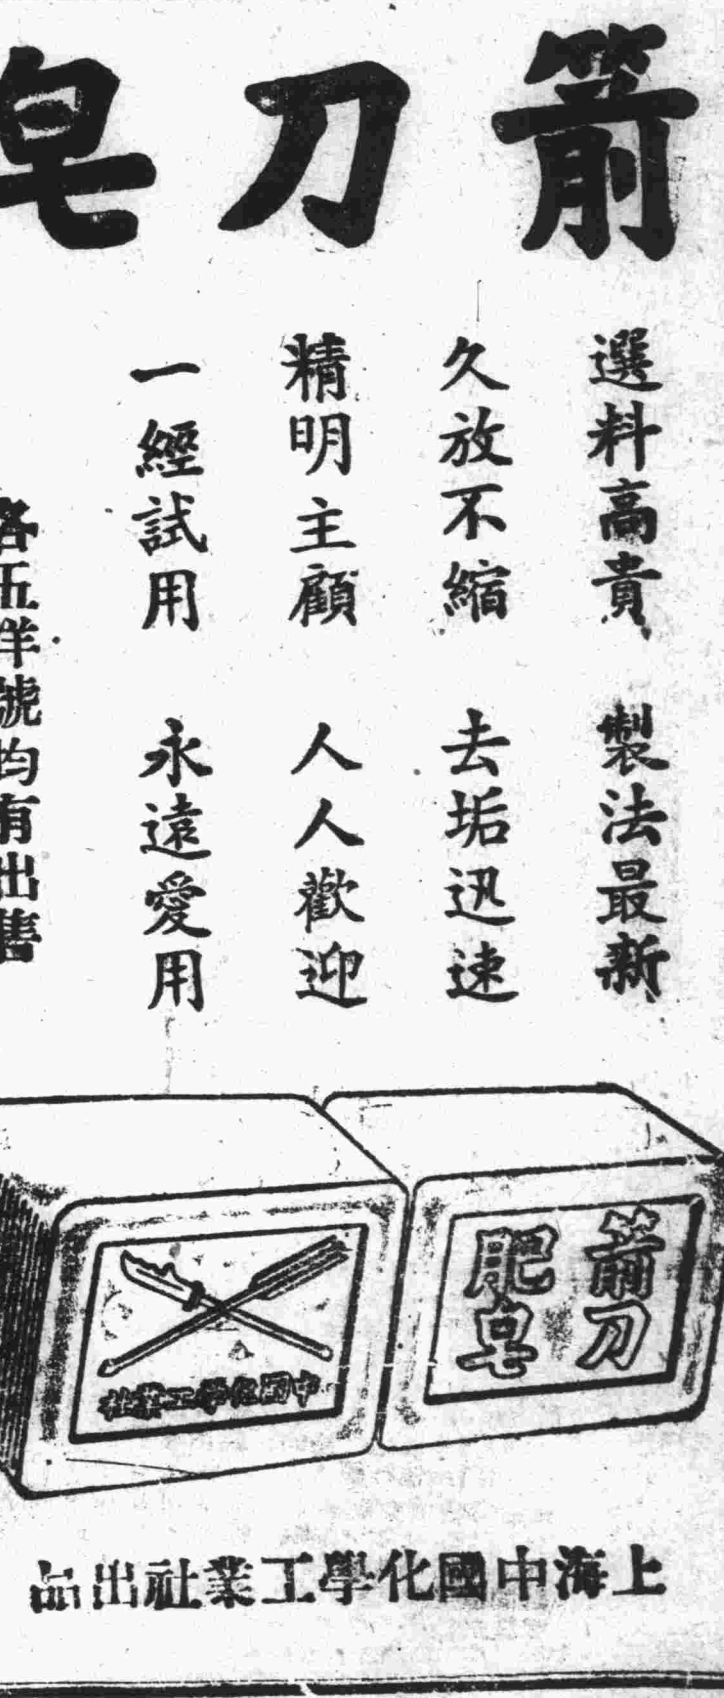 箭刀皂
選料高貴 製法最新
久放不縮 去垢迅速
精明主顧 人人歡迎
一經試用 永遠愛用
各五洋號均有出售
箭刀
肥皂
中國化學工業社
上海中國化學工業社出品